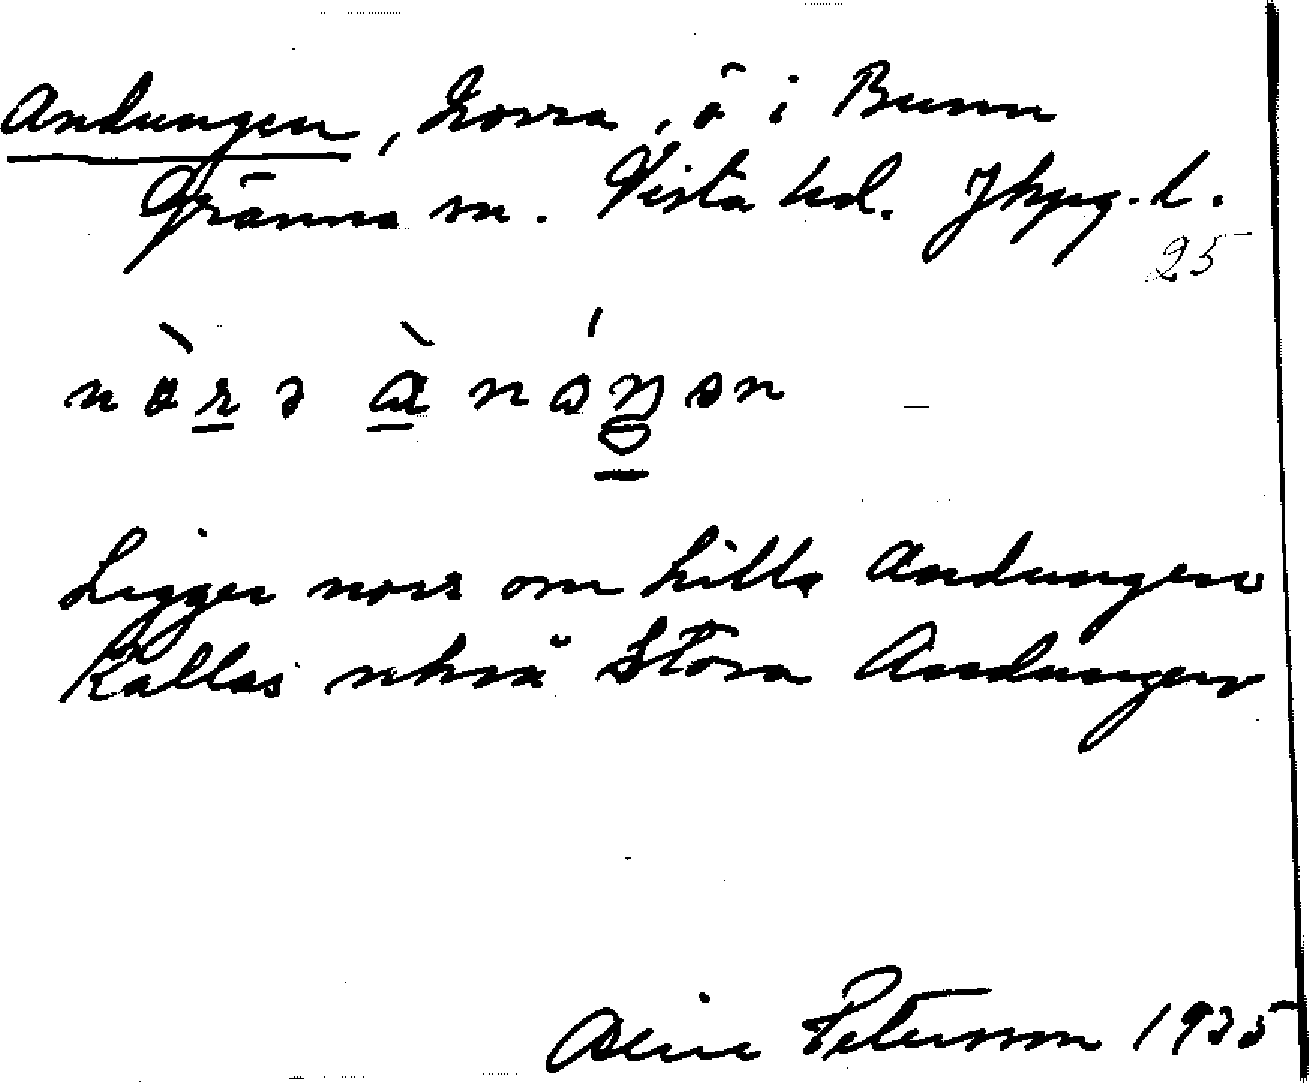 Andungen, Norra, ö i Bunn
Gränna sn. Vista hd. Jkpg. l.
25
Ligger norr om Lilla Andungen
Kallas också Stora Andungen
Petersson 1935